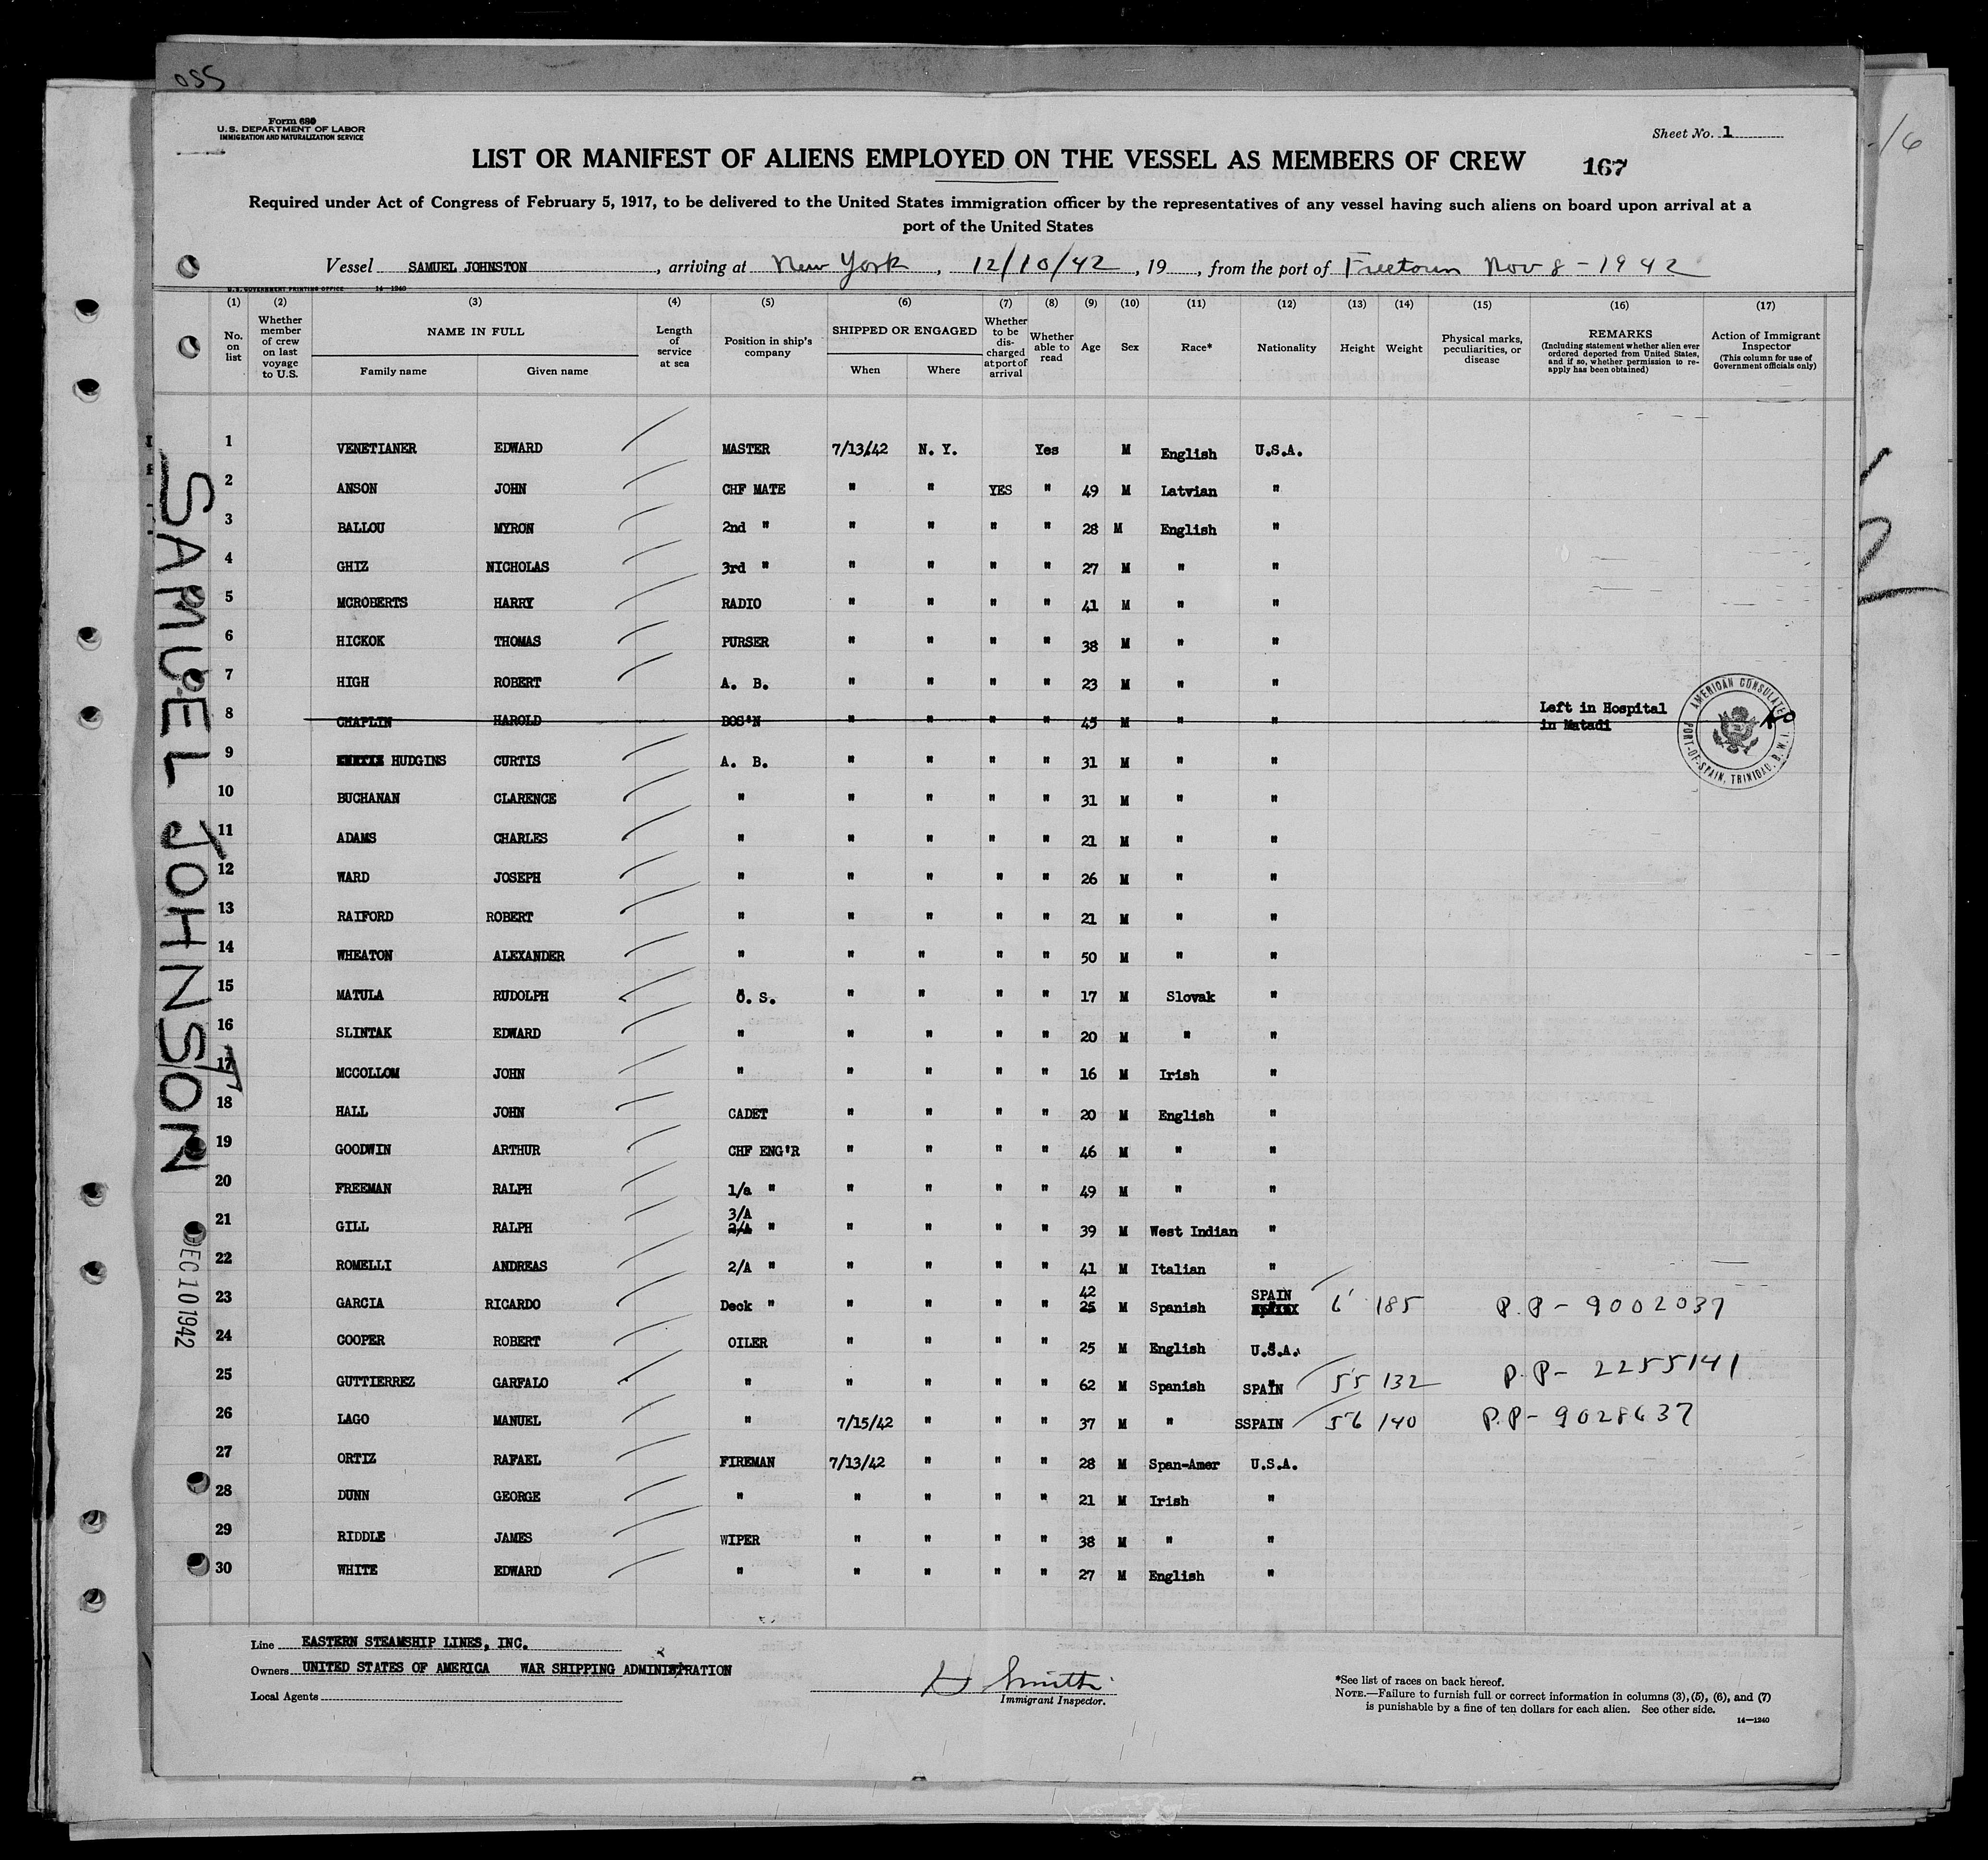 Form 680
U.S. DEPARTMENT OF LABOR
IMMIGRATION AND NATURALIZATION SERVICE
Sheet No. 1
LIST OR MANIFEST OF ALIENS EMPLOYED ON THE VESSEL AS MEMBERS OF CREW 167
Required under Act of Congress of February 5, 1917, to be delivered to the United States immigration officer by the representatives of any vessel having such aliens on board upon arrival at a
port of the United States
Vessel SAMUEL JOHNSTON, arriving at New York, 12/10/42, 19, from the port of Freetown Nov 8-1942
U.S. GOVERNMENT PRINTING OFFICE 14-1240
(1) (2) (3) (4) (5) (6) (7) (8) (9) (10) (11) (12) (13) (14) (15) (16) (17)
No. on list
Whether member of crew on last voyage to U.S.
NAME IN FULL
Family name
Given name
Length of service at sea
Position in ship's company
SHIPPED OR ENGAGED
When
Where
Whether to be discharged at port of arrival
Whether able to read
Age
Sex
Race*
Nationality
Height
Weight
Physical marks, peculiarities, or disease
REMARKS
(Including statement whether alien ever ordered deported from United States, and if so, whether permission to reapply has been obtained)
Action of Immigrant Inspector
(This column for use of Government officials only)
1 VENETIANER EDWARD MASTER 7/13/42 N. Y. Yes M English U.S.A.
2 ANSON JOHN CHF MATE " " YES " 49 M Latvian "
3 BALLOU MYRON 2nd " " " " " 28 M English "
4 GHIZ NICHOLAS 3rd " " " " " 27 M " "
5 MCROBERTS HARRY RADIO " " " " 41 M " "
6 HICKOK THOMAS PURSER " " " " 38 M " "
7 HIGH ROBERT A. B. " " " " 23 M " "
8 CHAPLIN HAROLD BOS'N " " " " 45 M " " Left in Hospital in Matadi
AMERICAN CONSULATE PORT-OF-SPAIN, TRINIDAD, B.W.I.
9 HUDGINS CURTIS A. B. " " " " 31 M " "
10 BUCHANAN CLARENCE " " " " " 31 M " "
11 ADAMS CHARLES " " " " " 21 M " "
12 WARD JOSEPH " " " " " 26 M " "
13 RAIFORD ROBERT " " " " " 21 M " "
14 WHEATON ALEXANDER " " " " " 50 M " "
15 MATULA RUDOLPH O. S. " " " " 17 M Slovak "
16 SLINTAK EDWARD " " " " " 20 M " "
17 MCCOLLOM JOHN " " " " " 16 M Irish "
18 HALL JOHN CADET " " " " 20 M English "
19 GOODWIN ARTHUR CHF ENG'R " " " " 46 M " "
20 FREEMAN RALPH 1/a " " " " " 49 M " "
21 GILL RALPH 3/A 2/A " " " " " 39 M West Indian "
22 ROMELLI ANDREAS 2/A " " " " " 41 M Italian "
23 GARCIA RICARDO Deck " " " " " 42 25 M Spanish SPAIN 6' 185 P.P - 9002037
24 COOPER ROBERT OILER " " " " 25 M English U.S.A.
25 GUTTIERREZ GARFALO " " " " " 62 M Spanish SPAIN 5'5 132 P.P- 2255141
26 LAGO MANUEL " 7/15/42 " " " 37 M " SSPAIN 5'6 140 P.P- 9028637
27 ORTIZ RAFAEL FIREMAN 7/13/42 " " " 28 M Span-Amer U.S.A.
28 DUNN GEORGE " " " " " 21 M Irish "
29 RIDDLE JAMES WIPER " " " " 38 M " "
30 WHITE EDWARD " " " " " 27 M English "
SAMUEL JOHNSTON
DEC 10 1942
Line EASTERN STEAMSHIP LINES, INC.
Owners UNITED STATES OF AMERICA WAR SHIPPING ADMINISTRATION
Local Agents
H Smith
Immigrant Inspector.
*See list of races on back hereof.
NOTE.—Failure to furnish full or correct information in columns (3), (5), (6), and (7)
is punishable by a fine of ten dollars for each alien. See other side.
14—1240